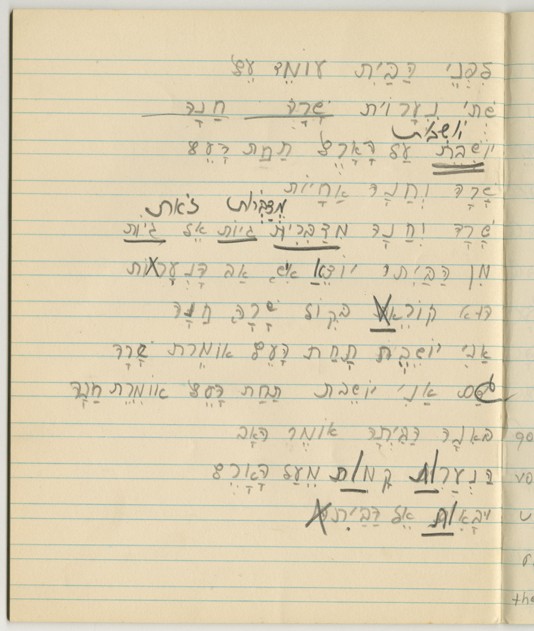 לִפְנֵי הַבַּיִת עוֹמֵד עֵץ
שְׁתֵּי נְעָרוֹת שָׂרָה חַנָּה
יושבות
יוֹשֶׁבֶת עַל הָאָרֶץ תַּחַת הָעֵץ
שָׂרָה וְחַנָּה אֲחָיוֹת
מְדַבְּרוֹת זאת
שָׂרָה וְחַנָּה מְדַבְּרִית גיות אֶל גיות
מִן הַבַּיִת יוֹצֵא אִישׁ אַב הַנְּעָרוֹת
הוּא קוֹרֵא בְּקוֹל שָׂרָה חַנָּה
אֲנִי יוֹשֶׁבֶת תַּחַת הָעֵץ אוֹמֶרֶת שָׂרָה
גַּם אֲנִי יוֹשֶׁבֶת תַּחַת הָעֵץ אוֹמֶרֶת חַנָּה
הַבַּיְתָה אוֹמֵר הָאָב
הַנְּעָרוֹת קָמוֹת מֵעַל הָאָרֶץ
וּבָאוֹת אֶל הַבַּיִת